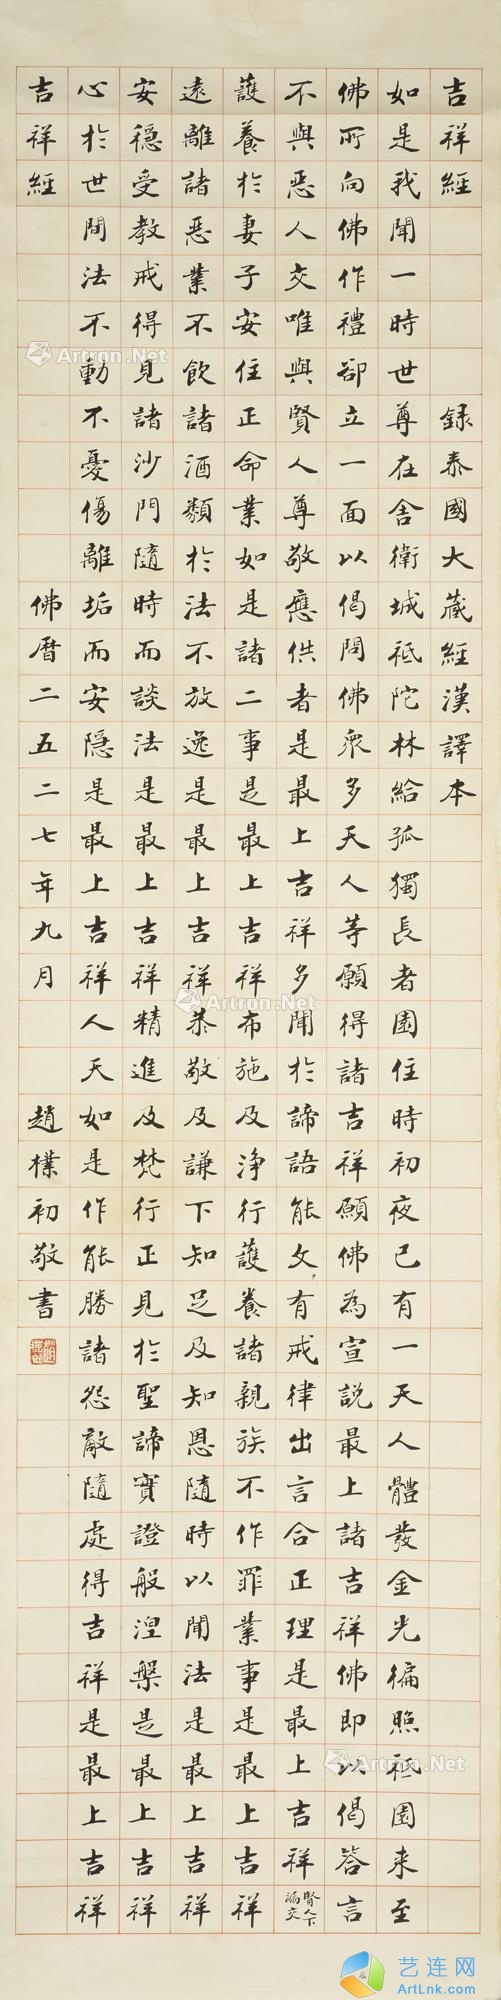 吉祥經 錄泰國大藏經漢譯本
如是我聞一時世尊在舍衛城祇陀林給孤獨長者園住時初夜已有一天人體發金光徧照祇園来至
佛所向佛作禮卻立一面以偈問佛眾多天人等願得諸吉祥願佛為宣說最上諸吉祥佛即以偈答言
不與惡人交唯與賢人尊敬應供者是最上吉祥多聞於諦語能文有戒律出言合正理是最上吉祥 賢人下漏交
護養於妻子安住正命業如是諸二事是最上吉祥布施及淨行護養諸親族不作罪業事是最上吉祥
遠離諸惡業不飲諸酒類於法不放逸是最上吉祥恭敬及謙下知足及知恩隨時以聞法是最上吉祥
安穩受教戒得見諸沙門隨時而談法是最上吉祥精進及梵行正見於聖諦實證般涅槃是最上吉祥
心於世間法不動不憂傷離垢而安隱是最上吉祥人天如是作能勝諸怨敵隨處得吉祥是最上吉祥
吉祥經 佛曆二五二七年九月 趙樸初敬書
Artron.Net
Artron.Net
Artron.Net
Artron.Net
艺连网
ArtLnk.com